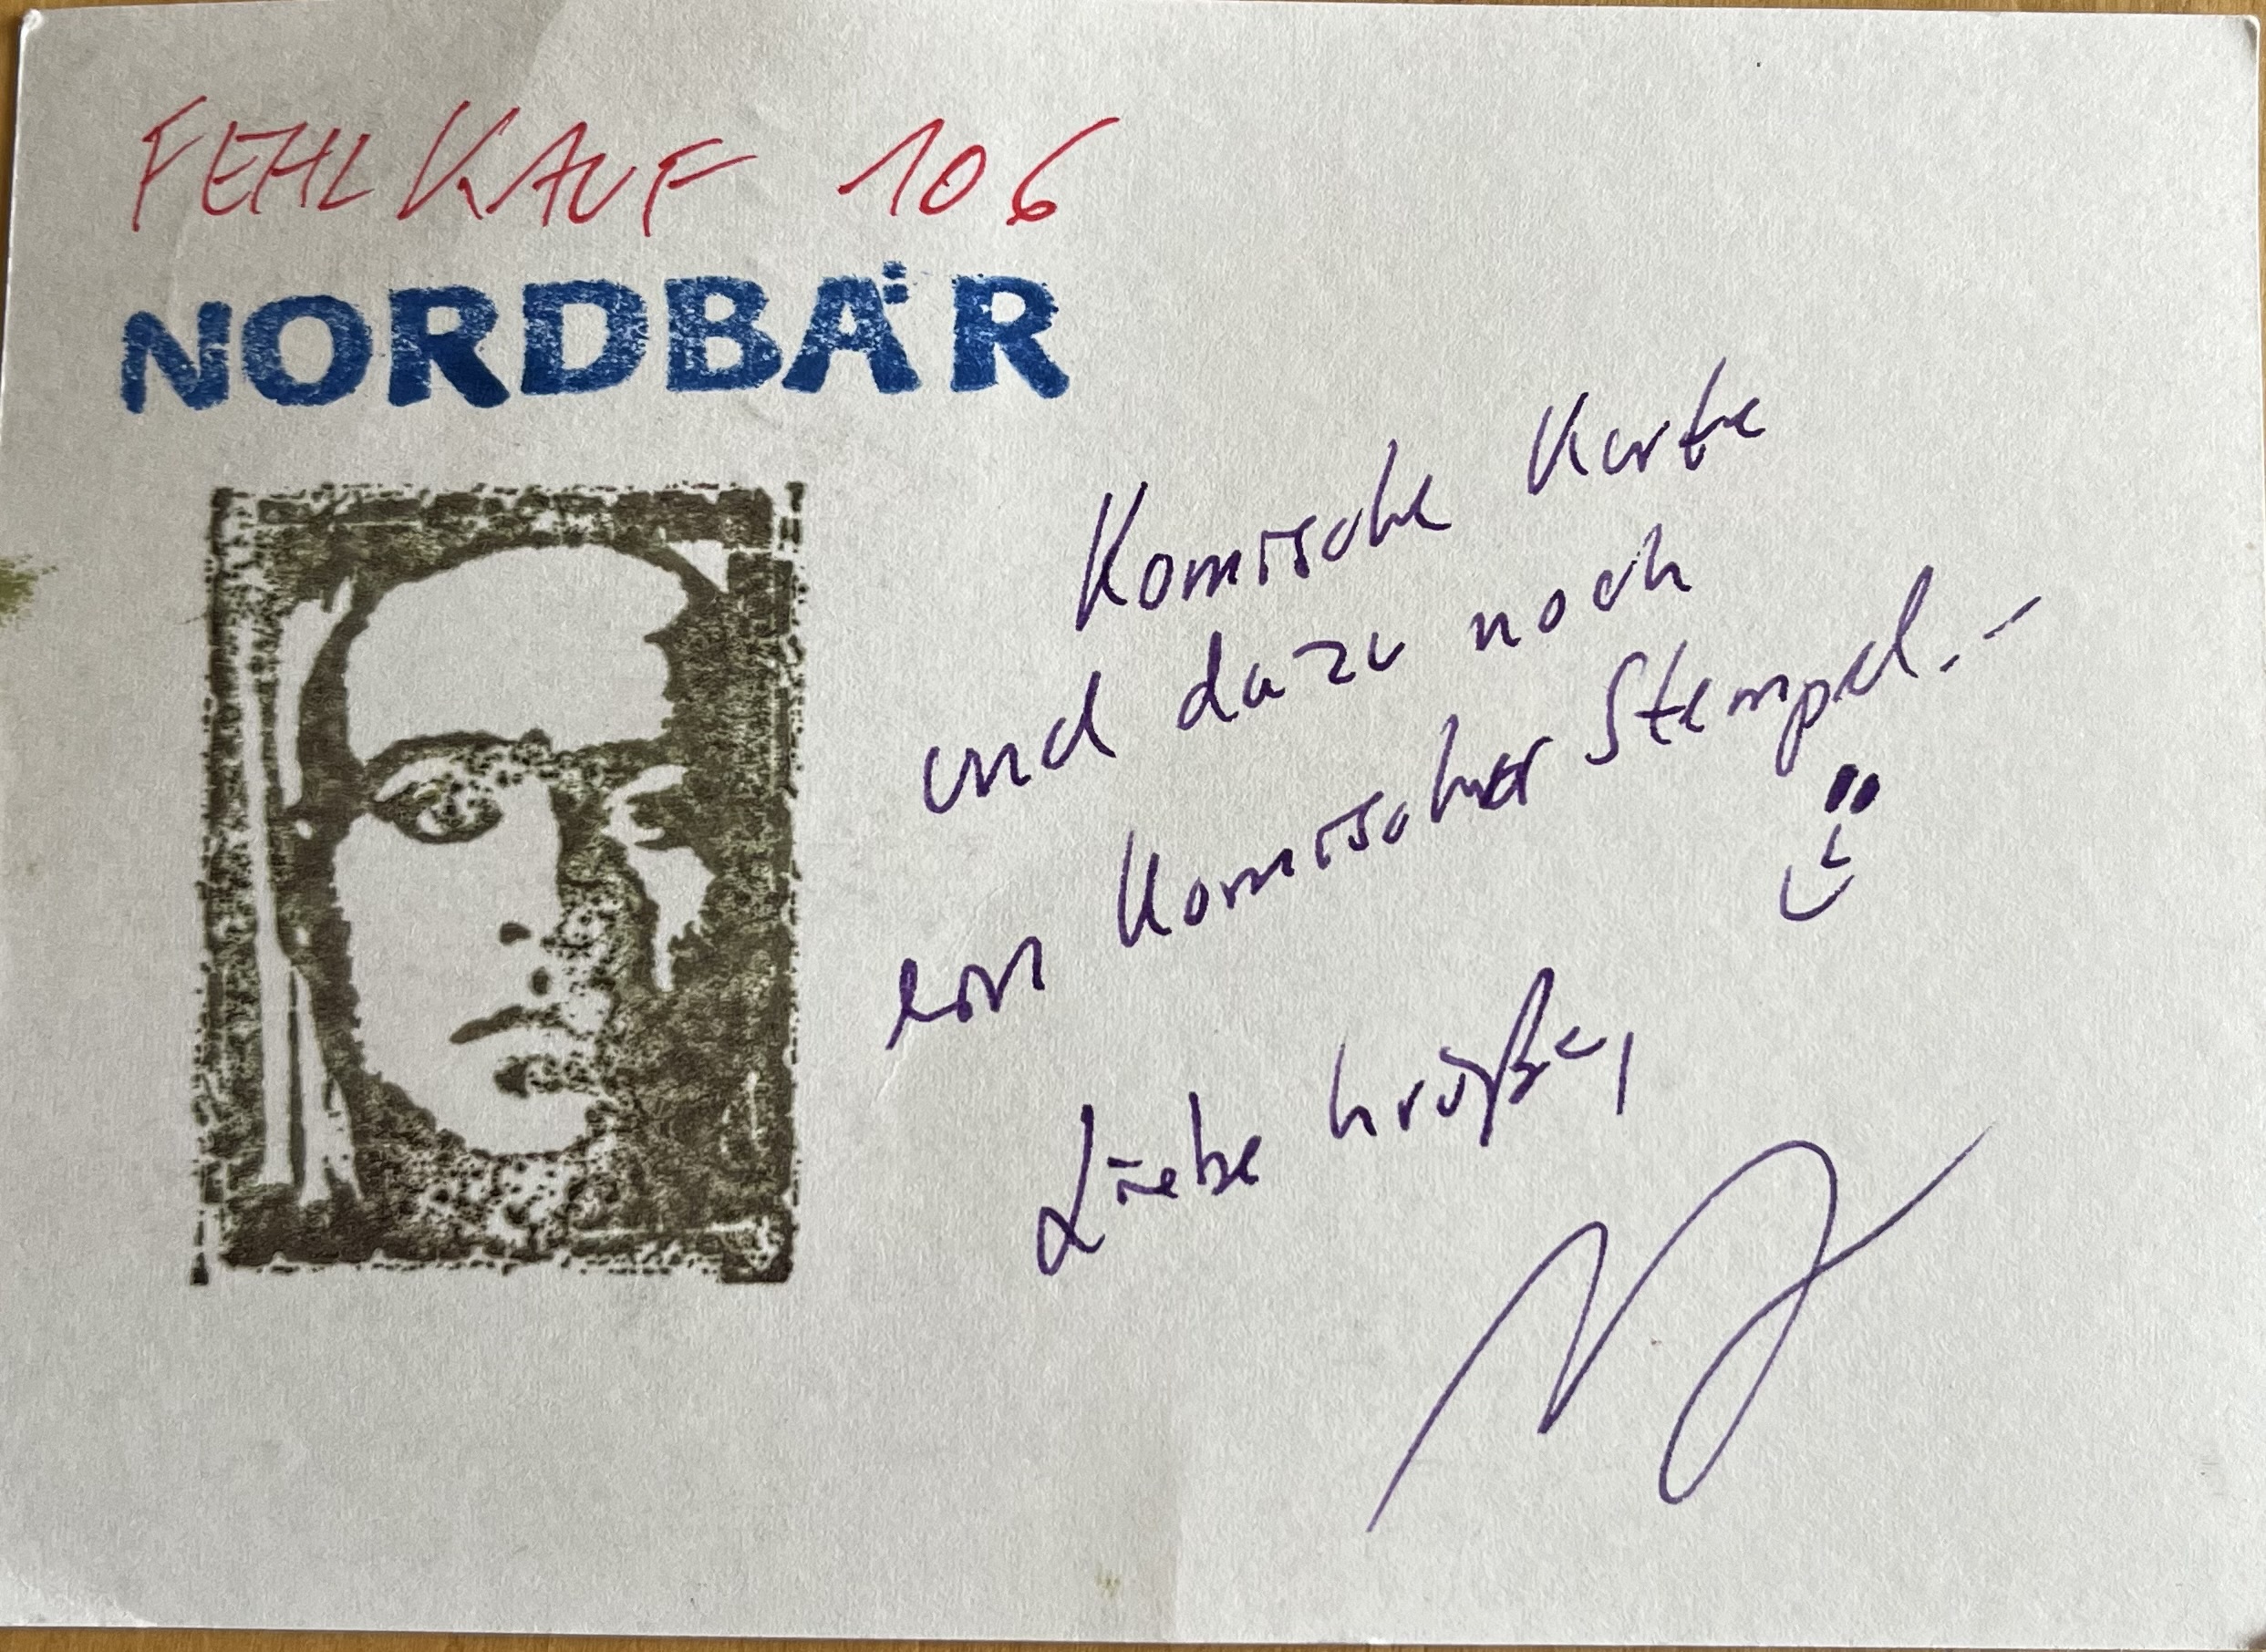 FEHLKAUF 106
NORDBÄR
Komische Karte
und dazu noch
ein komischer Stempel. –
Liebe Grüße,